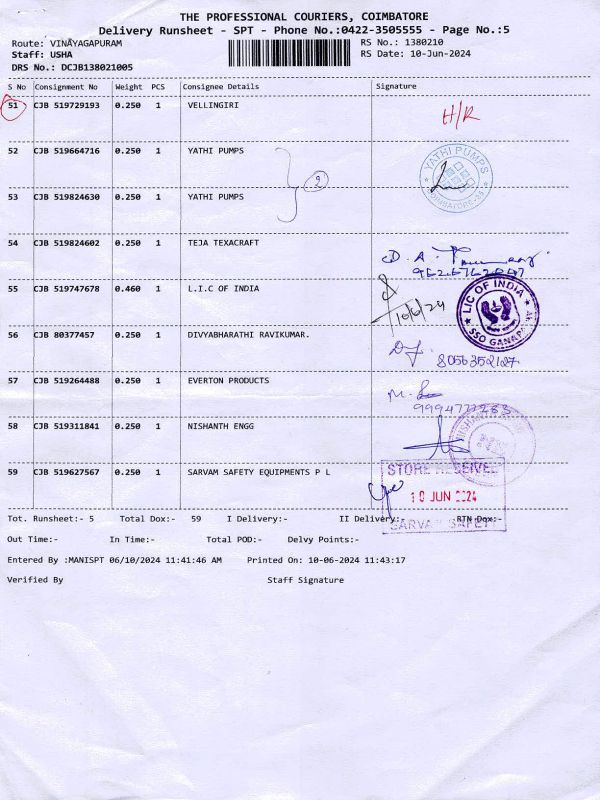 THE PROFESSIONAL COURIERS, COIMBATORE
Delivery Runsheet - SPT - Phone No.:0422-3505555 - Page No.:5
Route: VINAYAGAPURAM RS No.: 1380210
Staff: USHA RS Date: 10-Jun-2024
DRS No.: DCJB138021005
S No Consignment No Weight PCS Consignee Details Signature
51 CJB 519729193 0.250 1 VELLINGIRI H/R
52 CJB 519664716 0.250 1 YATHI PUMPS YATHI PUMPS
2
53 CJB 519824630 0.250 1 YATHI PUMPS
54 CJB 519824602 0.250 1 TEJA TEXACRAFT D. A.
55 CJB 519747678 0.460 1 L.I.C OF INDIA 10/6/24 LIC OF INDIA
56 CJB 80377457 0.250 1 DIVYABHARATHI RAVIKUMAR.
8056352127
57 CJB 519264488 0.250 1 EVERTON PRODUCTS M.
9994777283
58 CJB 519311841 0.250 1 NISHANTH ENGG
59 CJB 519627567 0.250 1 SARVAM SAFETY EQUIPMENTS P L STORE RECEIVED
10 JUN 2024
SARVAM SAFETY
Tot. Runsheet:- 5 Total Dox:- 59 I Delivery:- II Delivery:- RTN Dox:-
Out Time:- In Time:- Total POD:- Delvy Points:-
Entered By :MANISPT 06/10/2024 11:41:46 AM Printed On: 10-06-2024 11:43:17
Verified By Staff Signature